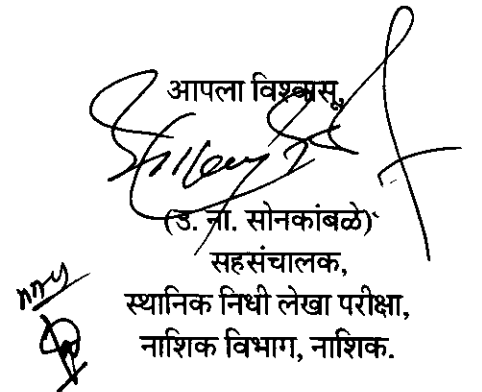 आपला विश्वासू,
(उ. ना. सोनकांबळे)
सहसंचालक,
स्थानिक निधी लेखा परीक्षा,
नाशिक विभाग, नाशिक.